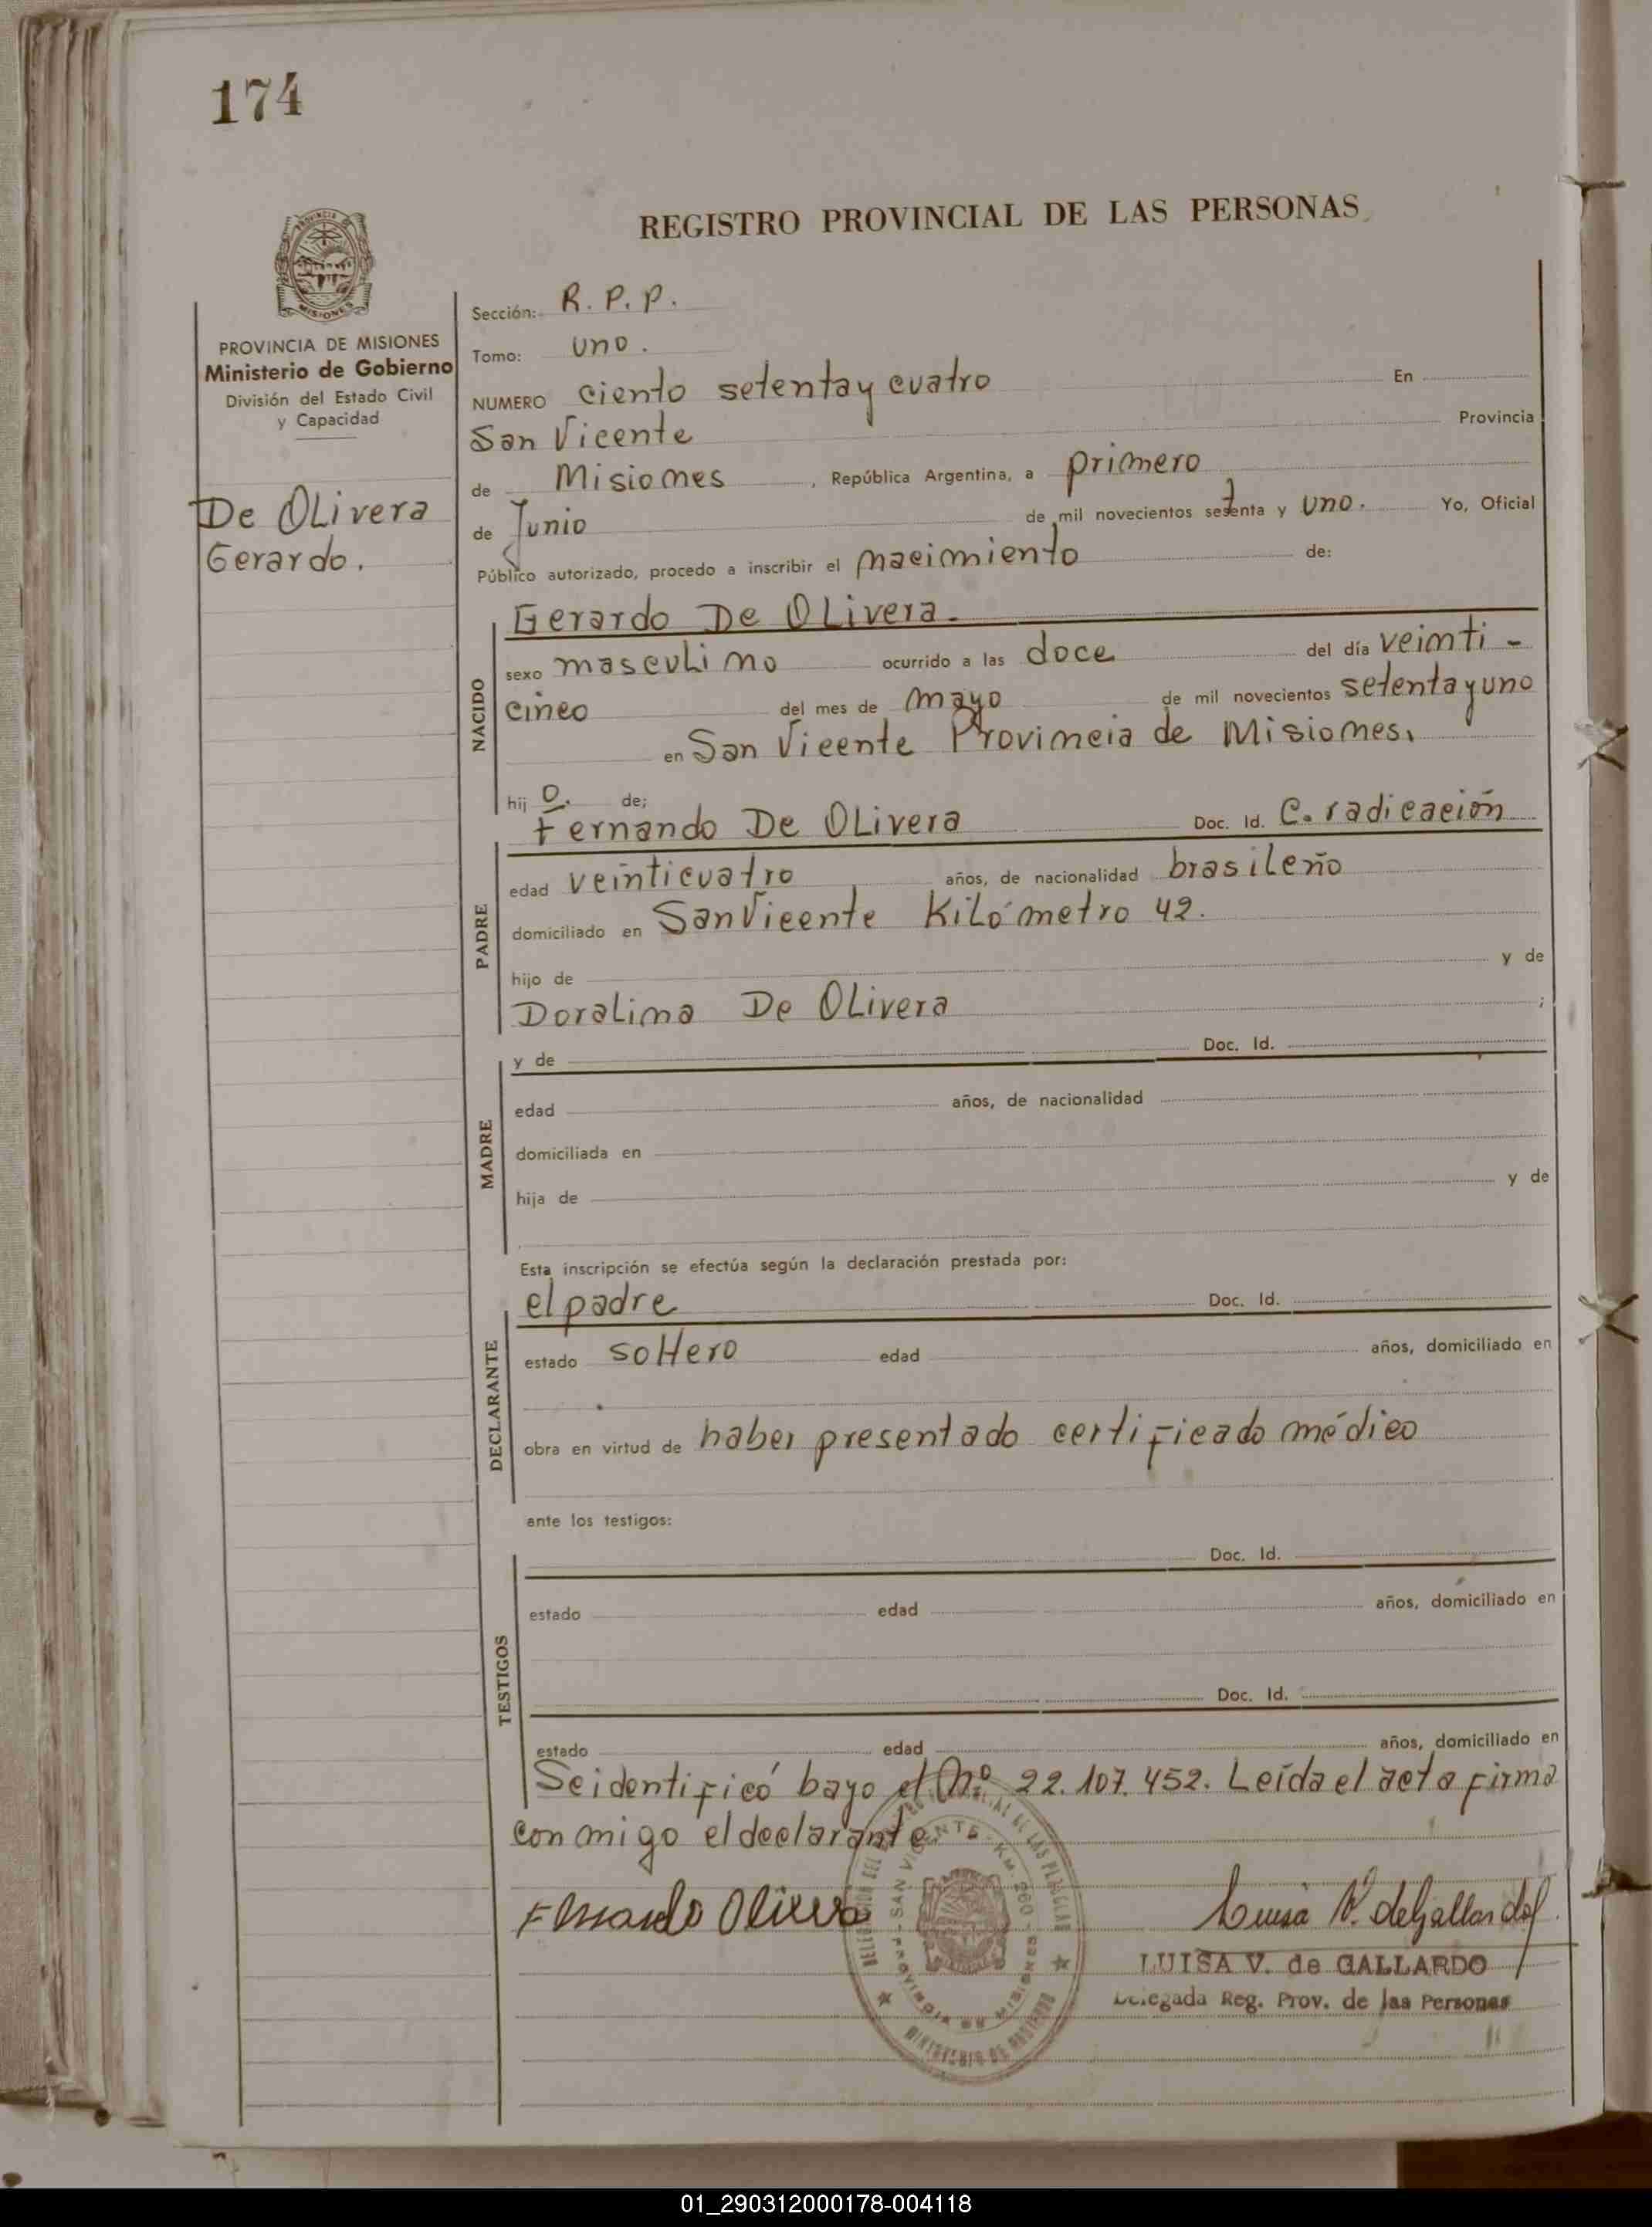 174
REGISTRO PROVINCIAL DE LAS PERSONAS
PROVINCIA MISIONES
PROVINCIA DE MISIONES
Ministerio de Gobierno
División del Estado Civil
y Capacidad
De OLivera
Gerardo.
Sección: R. P. P.
Tomo: uno.
NUMERO ciento setenta y cuatro En
San Vicente Provincia
de Misiones, República Argentina, a primero
de Junio de mil novecientos setenta y uno. Yo, Oficial
Público autorizado, procedo a inscribir el nacimiento de:
NACIDO
Gerardo De OLivera.
sexo masculino ocurrido a las doce del día veinti-
cinco del mes de mayo de mil novecientos setenta y uno
en San Vicente Provincia de Misiones.
hij o. de;
PADRE
Fernando De OLivera Doc. Id. C. radicación
edad veinticuatro años, de nacionalidad brasileño
domiciliado en San Vicente Kilómetro 42.
hijo de y de
Doralina De OLivera ;
MADRE
y de Doc. Id.
edad años, de nacionalidad
domiciliada en
hija de y de
Esta inscripción se efectúa según la declaración prestada por:
DECLARANTE
el padre Doc. Id.
estado soltero edad años, domiciliado en
obra en virtud de haber presentado certificado médico
ante los testigos:
TESTIGOS
Doc. Id.
estado edad años, domiciliado en
Doc. Id.
estado edad años, domiciliado en
Se identificó bayo el Nº 22.107.452. Leída el acta firma
conmigo el declarante
SAN VICENTE - KM. 260 - PROVINCIA DE MISIONES
MINISTERIO DE GOBIERNO
Fernando Olivera
Luisa V. de Gallardo
LUISA V. de GALLARDO
Delegada Reg. Prov. de las Personas
01_290312000178-004118